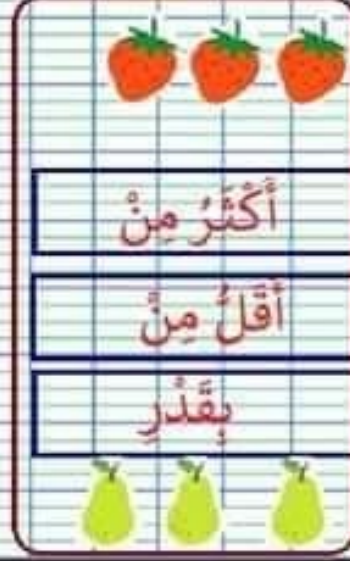 أَكْثَرُ مِنْ
أَقَلُّ مِنْ
بِقَدْرِ